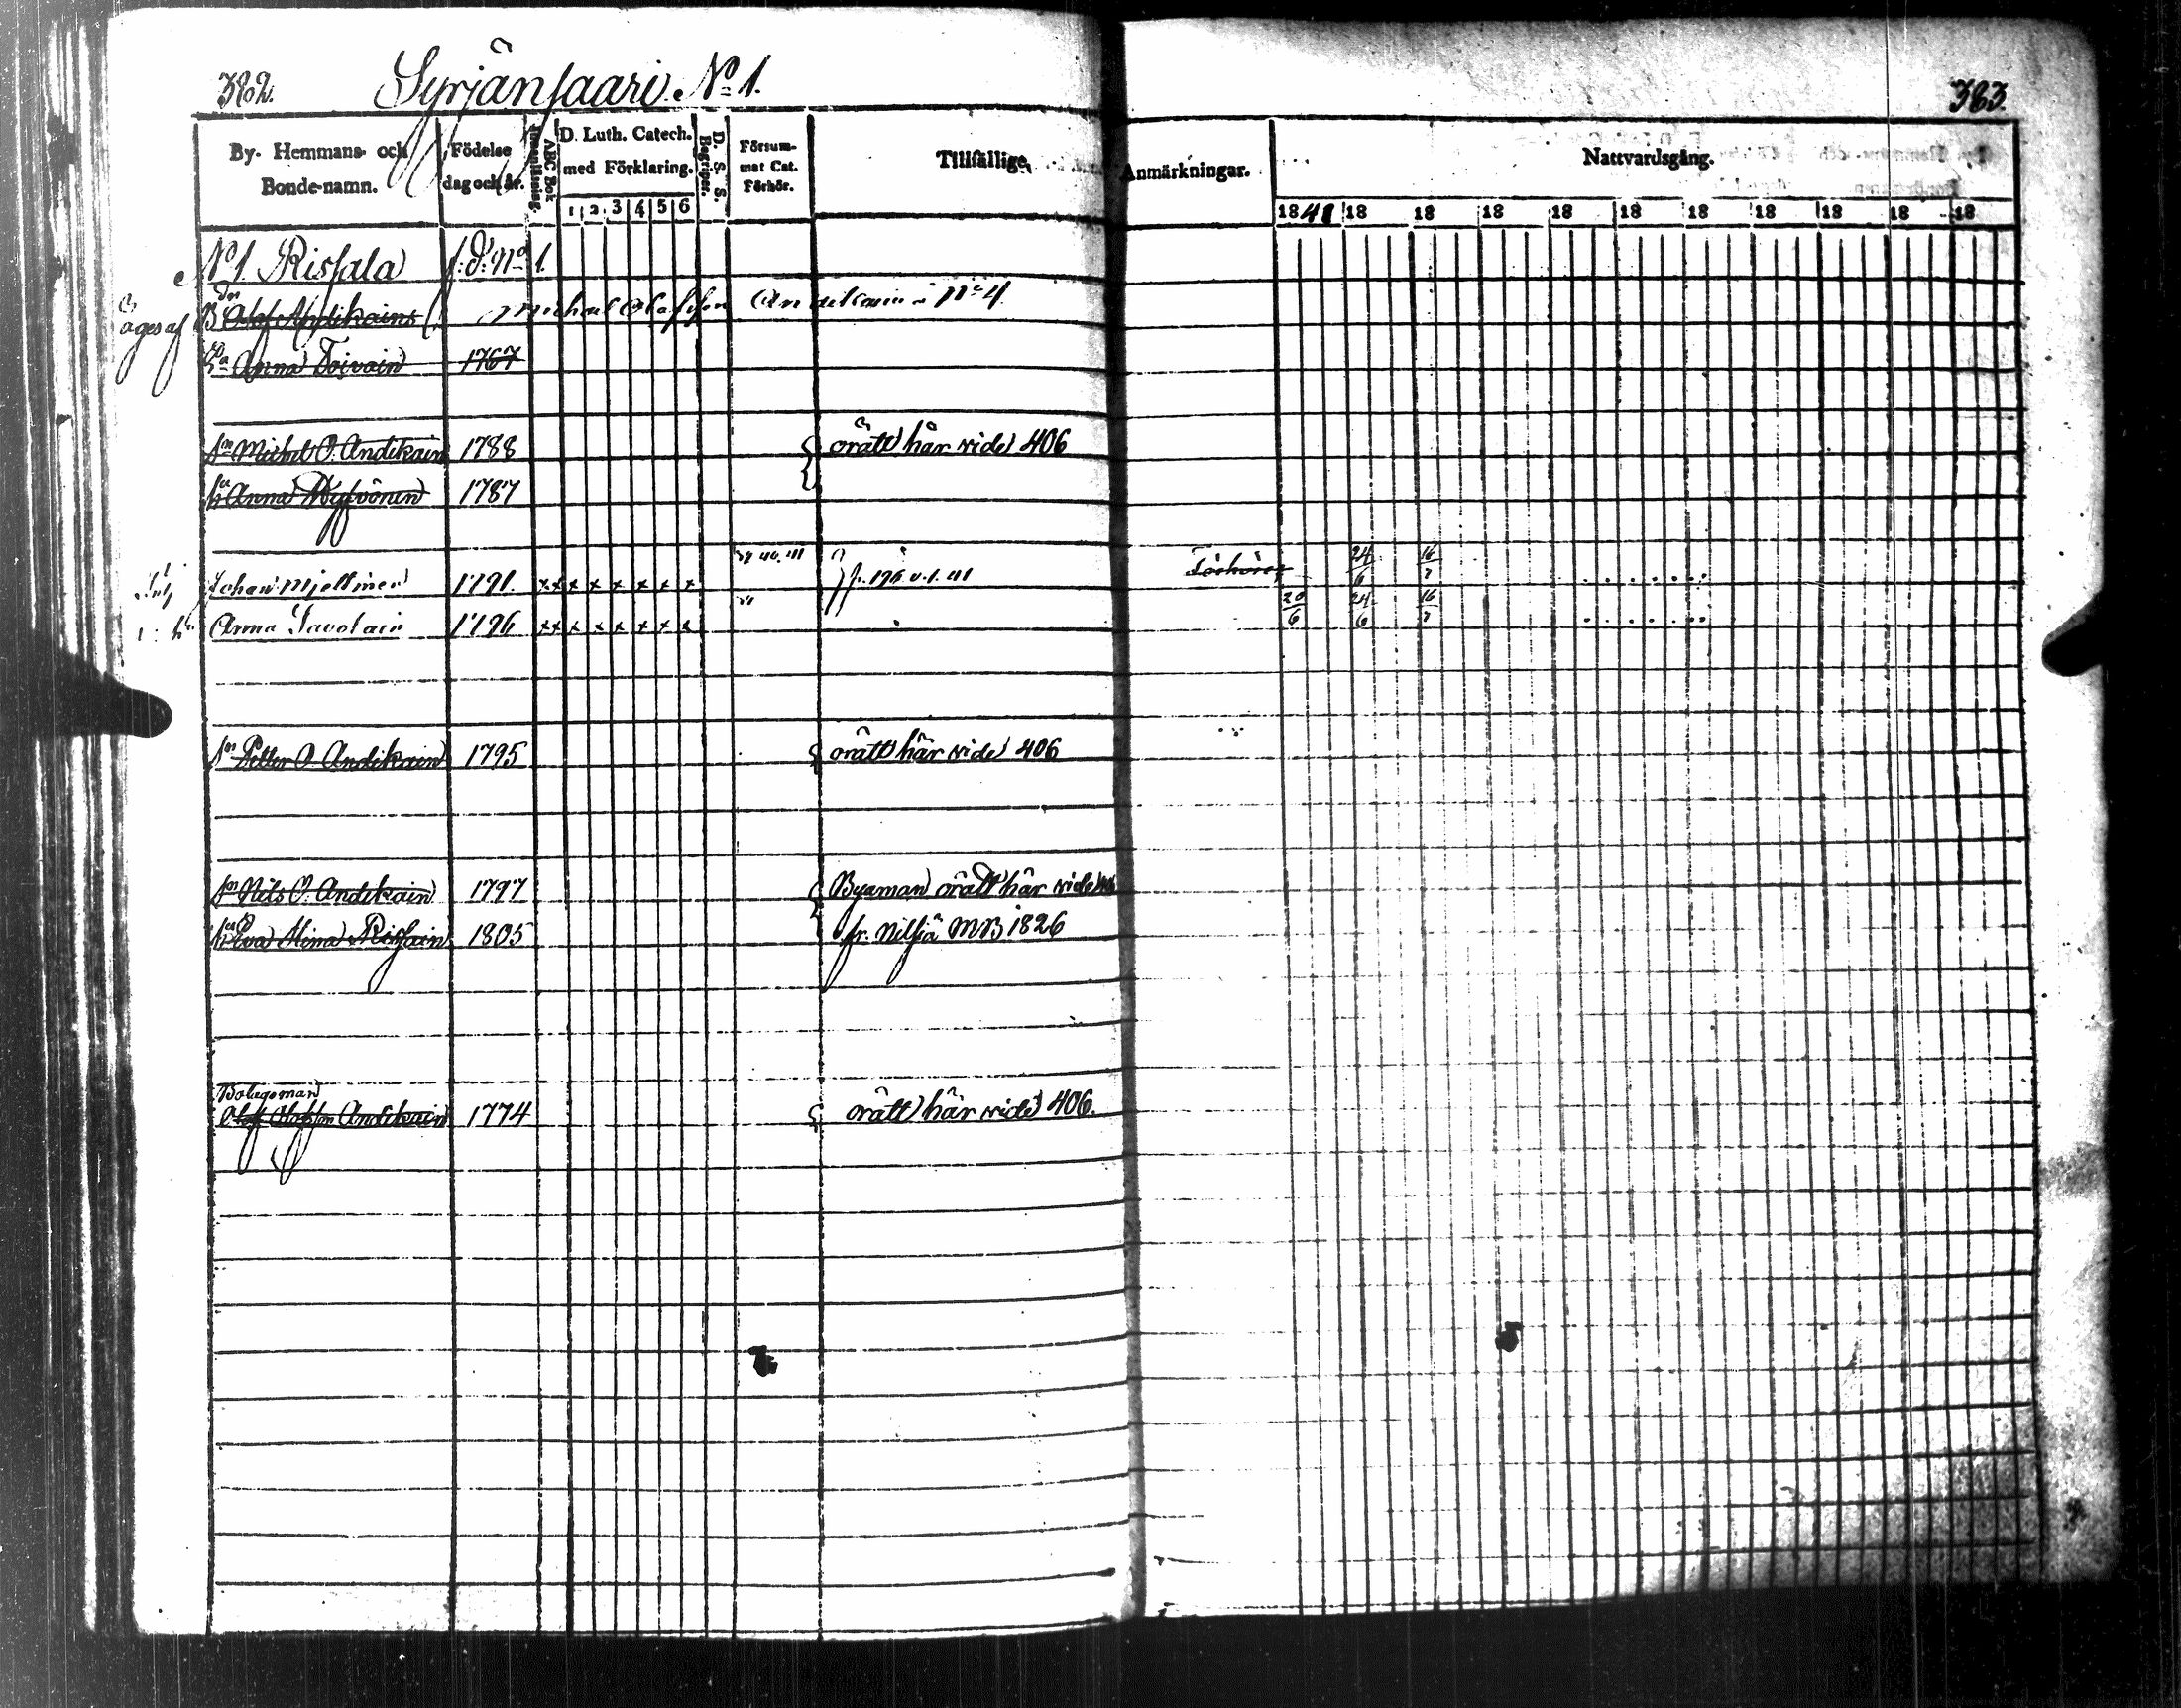 382. Syrjänsaari. No 1. 383.
By- Hemmans- och Bonde-namn.
Födelse dag och år.
Innanläsning.
ABC Bok
D. Luth. Catech. med Förklaring.
1 2 3 4 5 6
D. S. S. Begriper.
Försummat Cat. Förhör.
Tillfällige Anmärkningar.
Nattvardsgång.
1841 18 18 18 18 18 18 18 18 18 18
No 1. Rissala f: d: No 1.
äges af Bdn Olof Andikains Michael Olofsson Andikain i No 4
Ea Anna Toivain 1767
sn Michel O. Andikain 1788 orätt här vide 406
hu Anna Hyfvönen 1787
Johan Mjellmer 1791. x x x x x x x x fr. 196 Förhörer 24/6 16/7
hu Anna Savolain 1796 x x x x x x x x 20/6 24/6 16/7
sn Petter O. Andikain 1795 orätt här vide 406
sn Nils O. Andikain 1797 Byaman orätt här vide
hu Eva Stina Rissain 1805 fr. Nilsiä MB 1826
Bolagsman
Olof Olofsson Andikain 1774 orätt här vide 406.